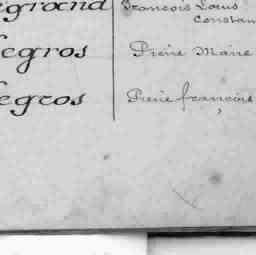 egrand François Louis
Constan
egros Pierre Marie
egros Pierre françois